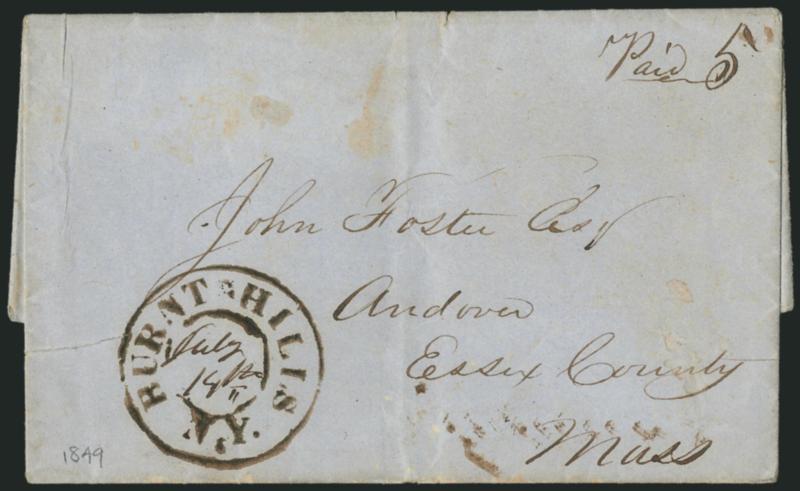 Paid 5
John Foster Esq
Andover
Essex County
Mass
BURNT HILLS
N.Y.
July
19th
1849